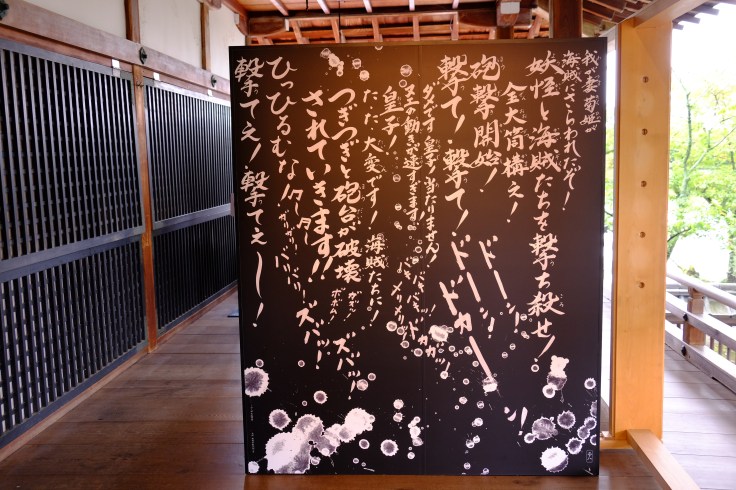 我が妻菊姫が
海賊にさらわれたぞ!
妖怪と海賊たちを撃ち殺せ!
金大筒構え!
ドーンッ!
砲撃開始!
撃て!撃て!
ドカーーンッ!
ダメです皇子!当たりません!
ヌエの動きが速すぎます!
ドカカッ!
メリメリ
皇子!
たた、大変です!
海賊たちに!
つぎつぎと砲台が破壊
されていきます!!
ズバッ!
ズバッ!
ひっひるむなバリバリ
撃てえ!撃てえー!